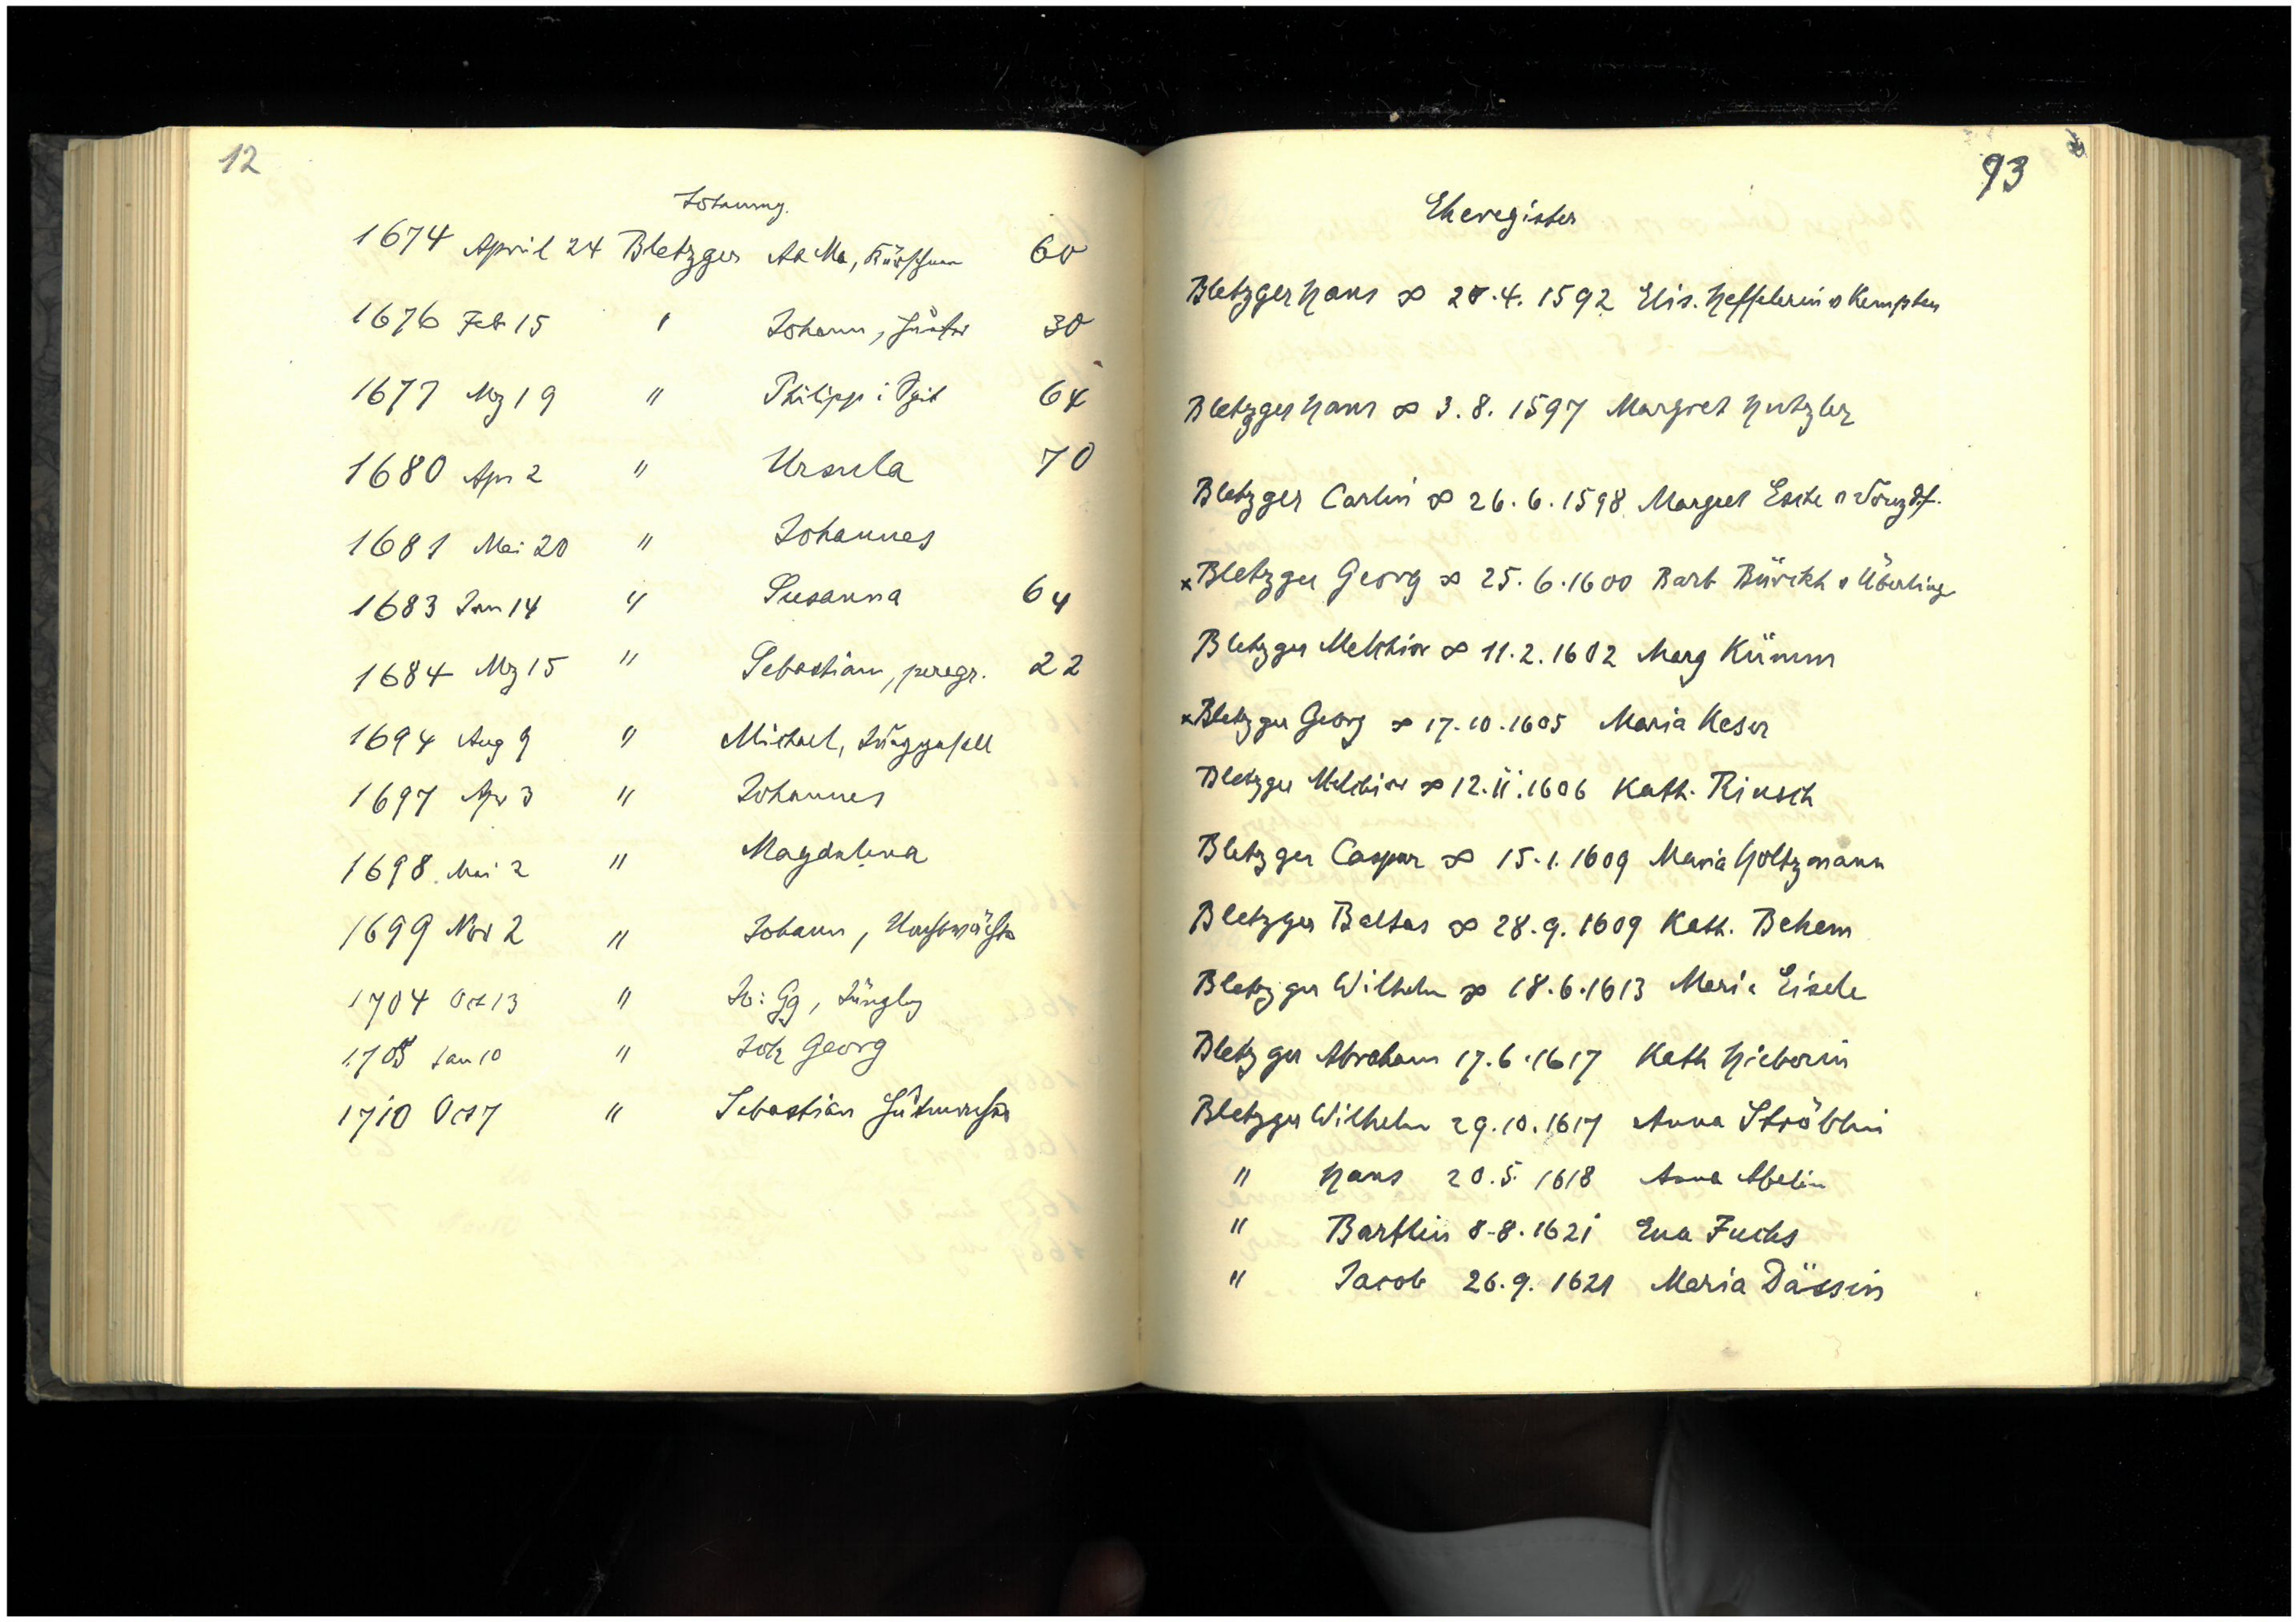 12
1674 April 24 Bletzger
1676 Feb 15 " Johann, 30
1677 Mz 19 " Philipp i Spit 64
1680 Apr 2 " Ursula 70
1681 Mai 20 " Johannes
1683 Jan 14 " Susanna 64
1684 Mz 15 " Sebastian, peregr. 22
1694 Aug 9 " Michael, Junggesell
1697 Apr 3 " Johannes
1698 Mai 2 " Magdalena
1699 Nov 2 " Johann, Nachtwächter
1704 Oct 13 " Jo: Gg, Jünglg
1705 Jan 10 " Joh Georg
1710 Oct 7 " Sebastian
93
Eheregister
Bletzger Hans ∞ 4. 1592 Elis. Kempten
Bletzger Hans ∞ 3. 8. 1597 Margret Hutzler
Bletzger ∞ 26. 6. 1598 Margret
x Bletzger Georg ∞ 25. 6. 1600 Barb Bürckh v Überling
Bletzger Melchior ∞ 11. 2. 1602 Marg Kümm
x Bletzger Georg ∞ 17. 10. 1605 Maria Keser
Bletzger Melchior ∞ 12. 11. 1606 Kath. Rinsch
Bletzger Caspar ∞ 15. 1. 1609 Maria Holtzmann
Bletzger Baltas ∞ 28. 9. 1609 Kath. Behem
Bletzger Wilhelm ∞ 18. 6. 1613 Maria Eisele
Bletzger Abraham 17. 6. 1617 Kath Hieberin
Bletzger Wilhelm 29. 10. 1617 Anna Ströblin
" Hans 20. 5. 1618 Anna Abelin
" Bartlin 8. 8. 1621 Eva Fuchs
" Jacob 26. 9. 1621 Maria Dässin